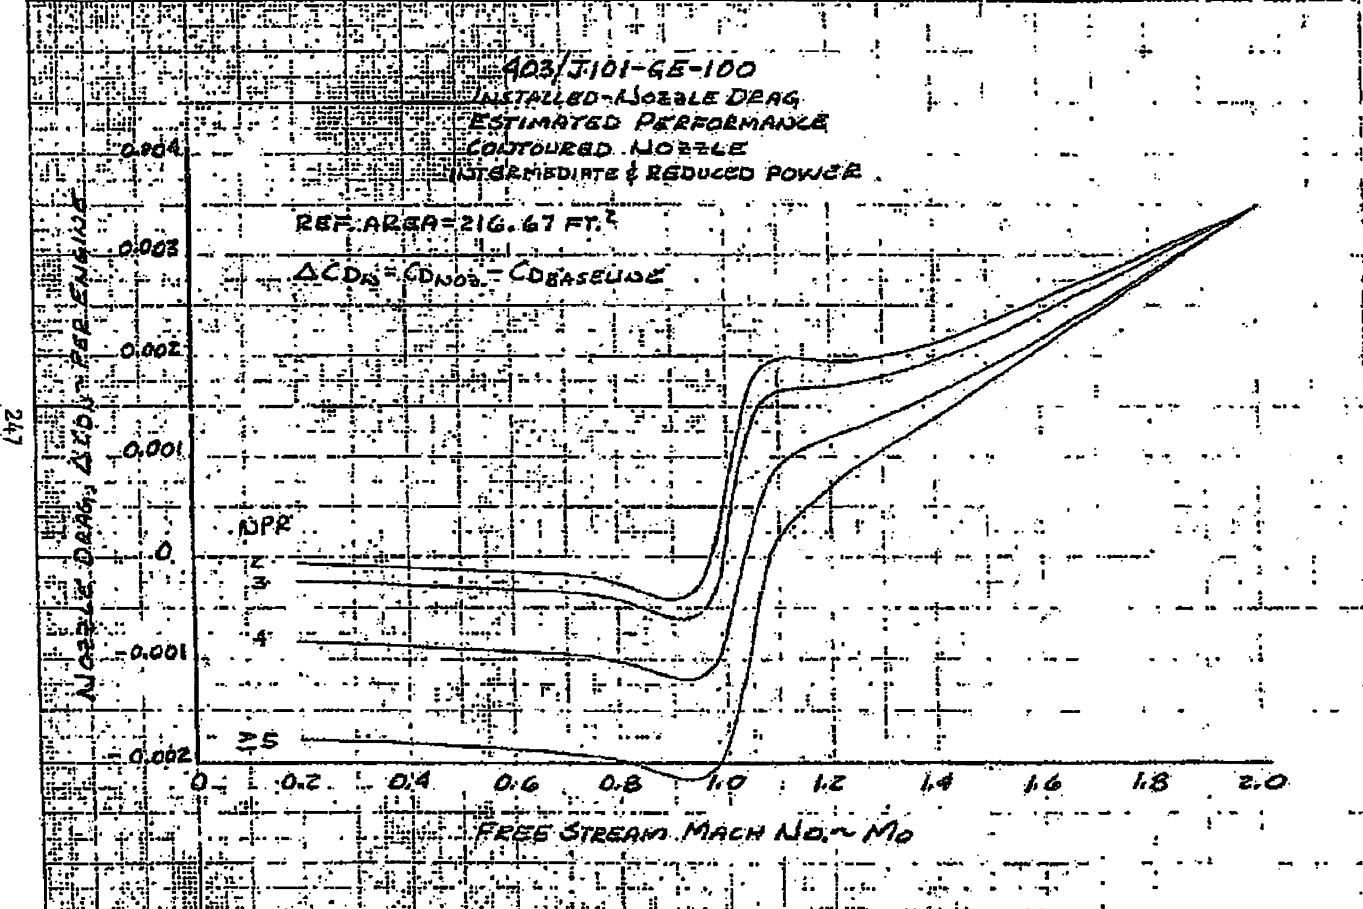 403/J101-GE-100
INSTALLED-NOZZLE DRAG
ESTIMATED PERFORMANCE
CONTOURED NOZZLE
INTERMEDIATE & REDUCED POWER
REF. AREA = 216.67 FT.²
ΔCDN = CDNOZ. - CDBASELINE
NOZZLE DRAG, ΔCDN ~ PER ENGINE
0.004
0.003
0.002
0.001
0
-0.001
-0.002
NPR
2
3
4
≥5
0 0.2 0.4 0.6 0.8 1.0 1.2 1.4 1.6 1.8 2.0
FREE STREAM MACH NO. ~ M0
247